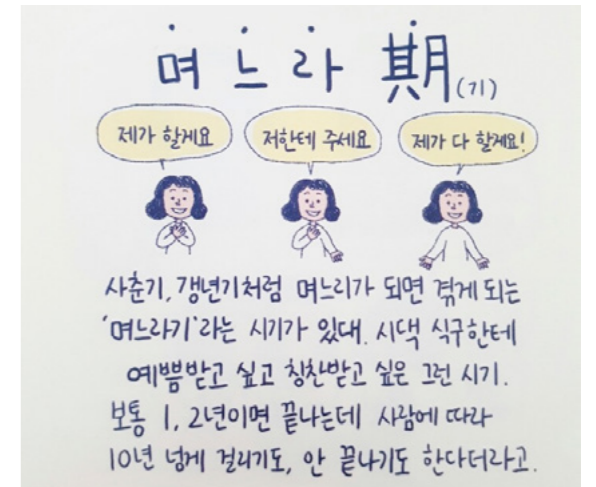 며느라 期(기)
제가 할게요 저한테 주세요 제가 다 할게요!
사춘기, 갱년기처럼 며느리가 되면 겪게 되는
'며느라기'라는 시기가 있대. 시댁 식구한테
예쁨받고 싶고 칭찬받고 싶은 그런 시기.
보통 1, 2년이면 끝나는데 사람에 따라
10년 넘게 걸리기도, 안 끝나기도 한다더라고.